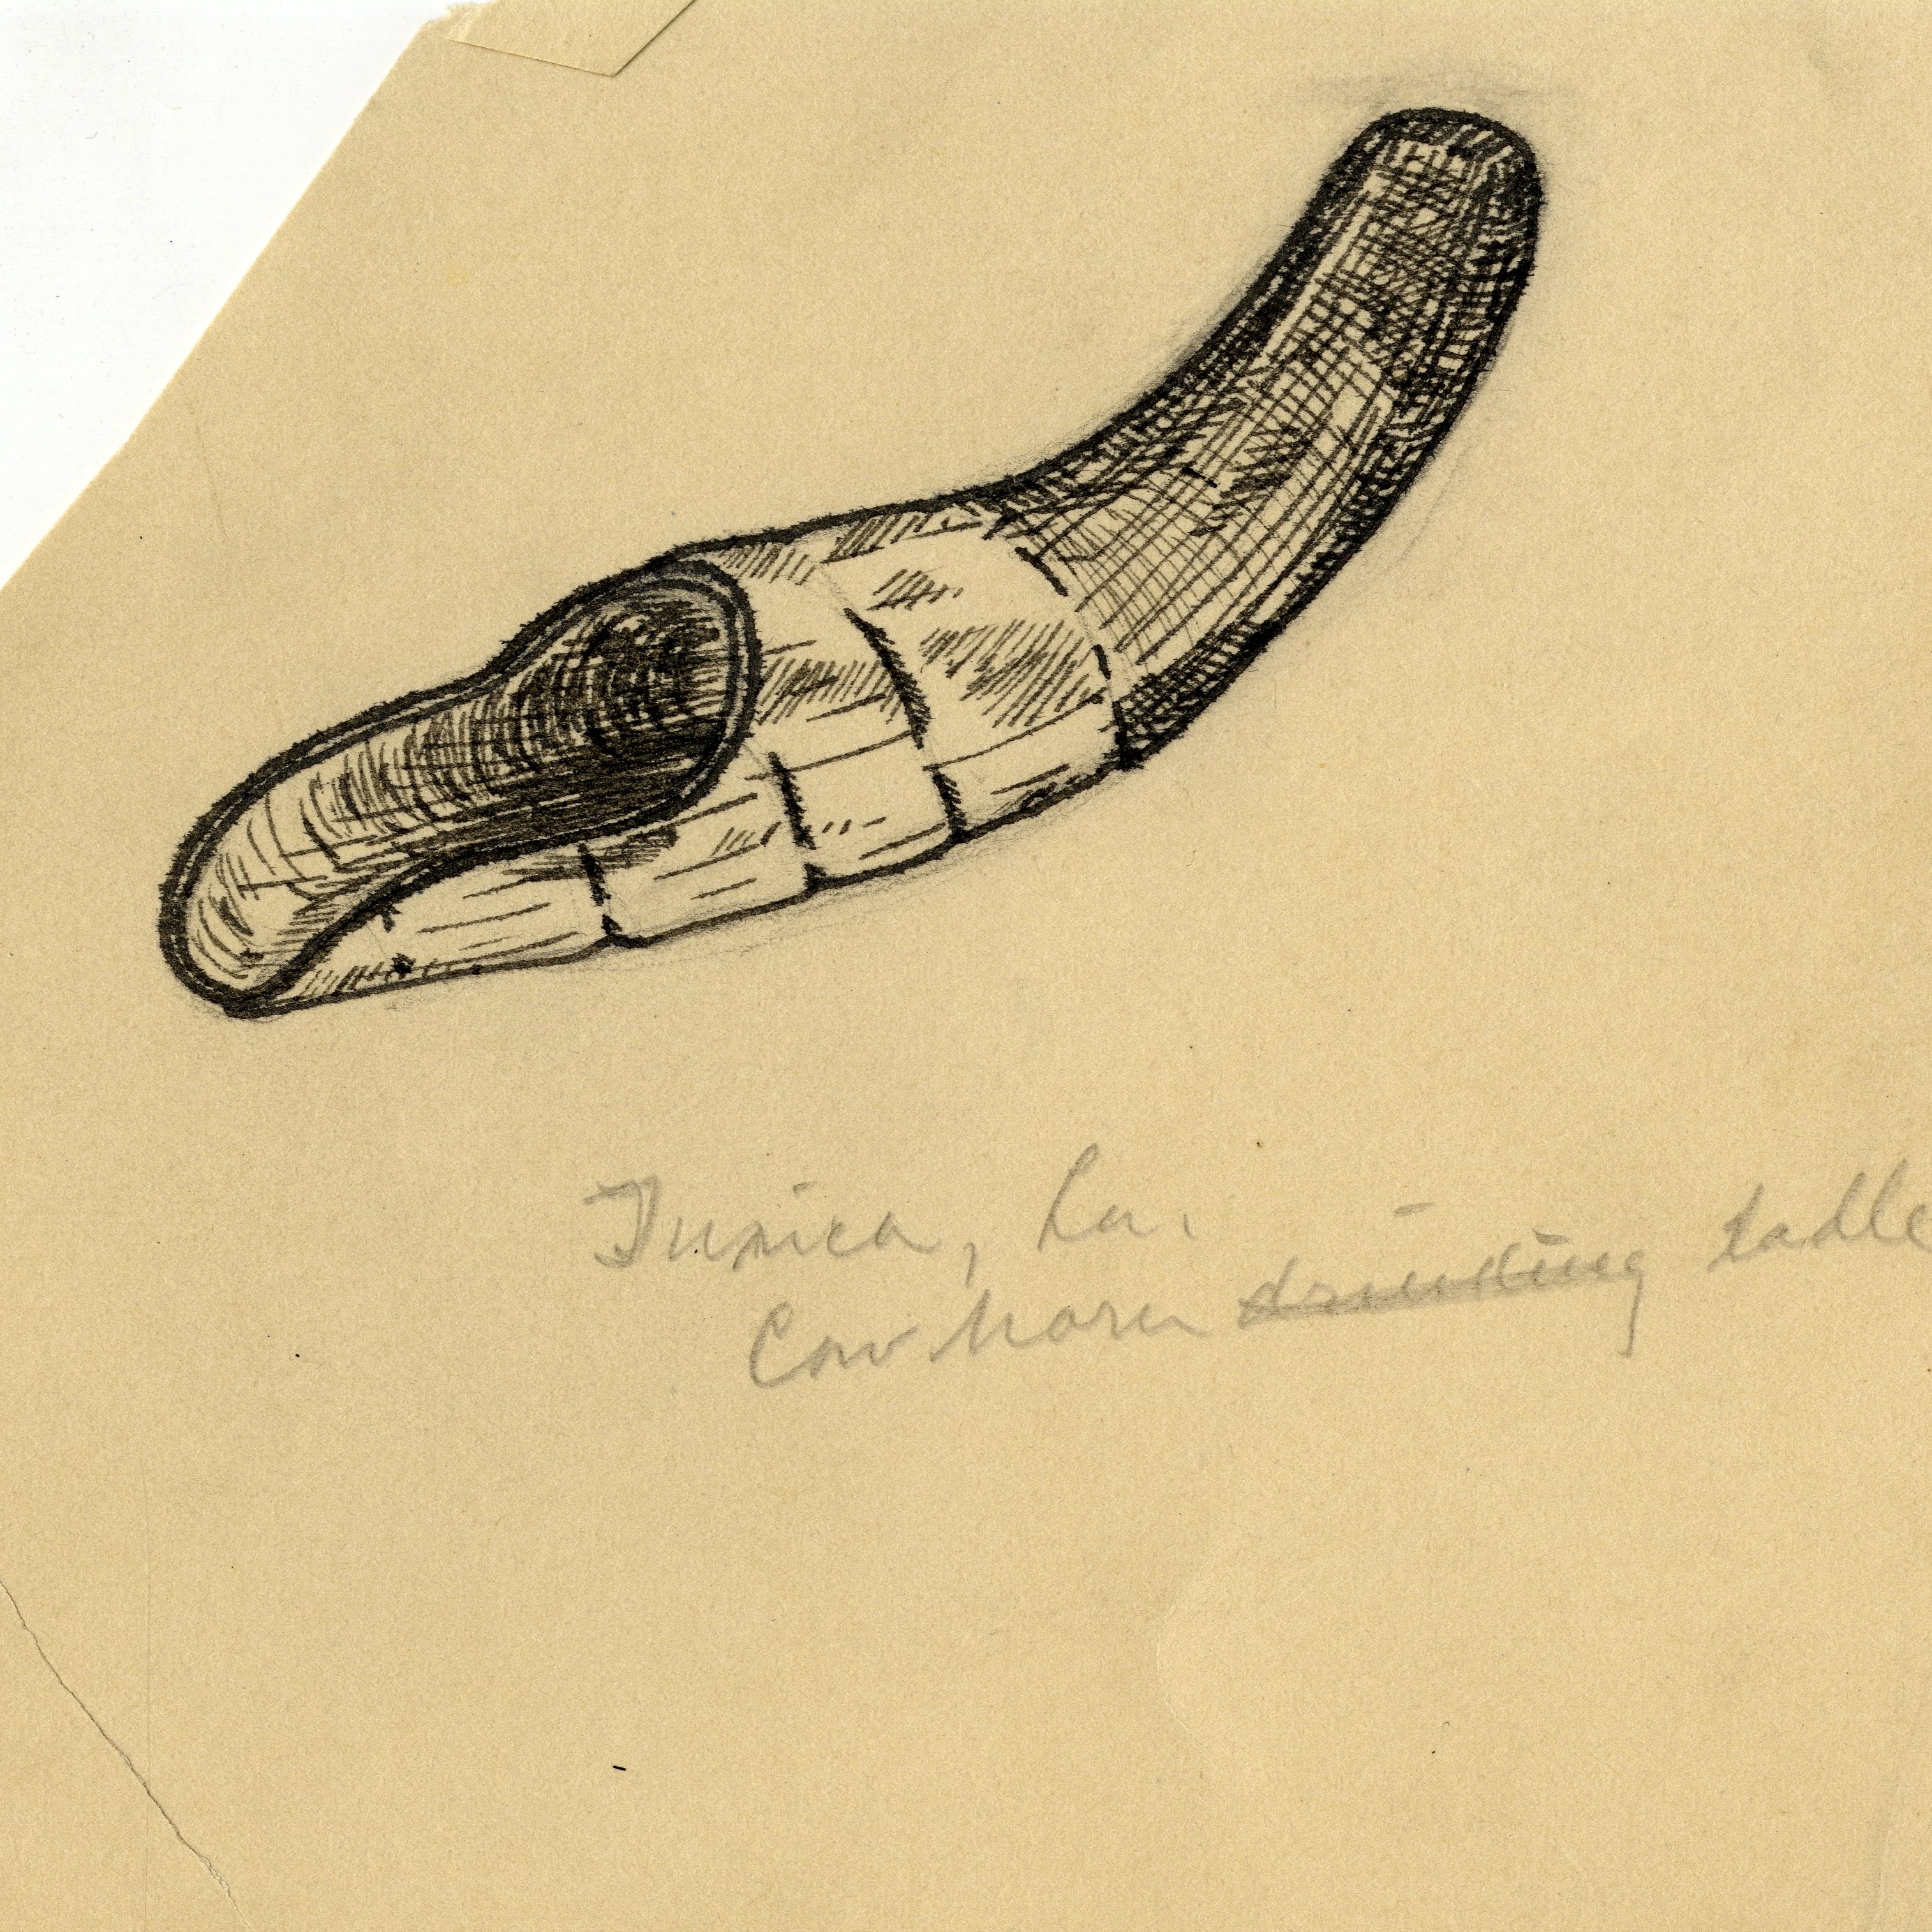 Tunica, La.
Cow horn drinking ladle